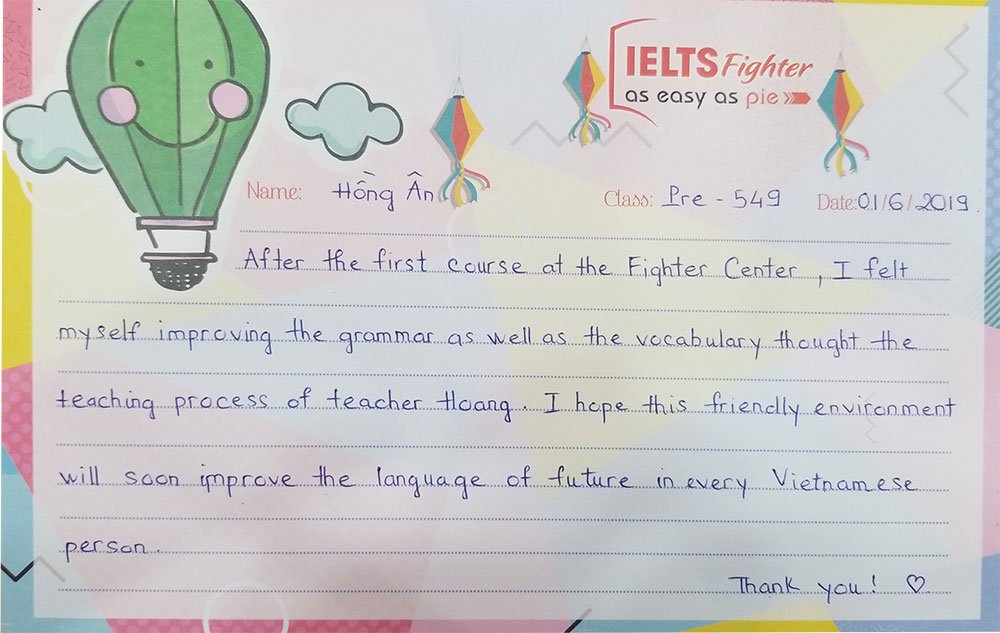 IELTS Fighter
as easy as pie
Name: Hồng Ân
Class: Pre - 549
Date: 01/6/2019
After the first course at the Fighter Center, I felt
myself improving the grammar as well as the vocabulary thought the
teaching process of teacher Hoang. I hope this friendly environment
will soon improve the language of future in every Vietnamese
person.
Thank you! ♡